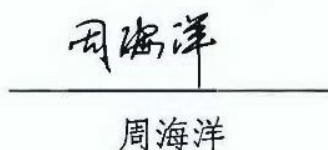 周海洋
周海洋